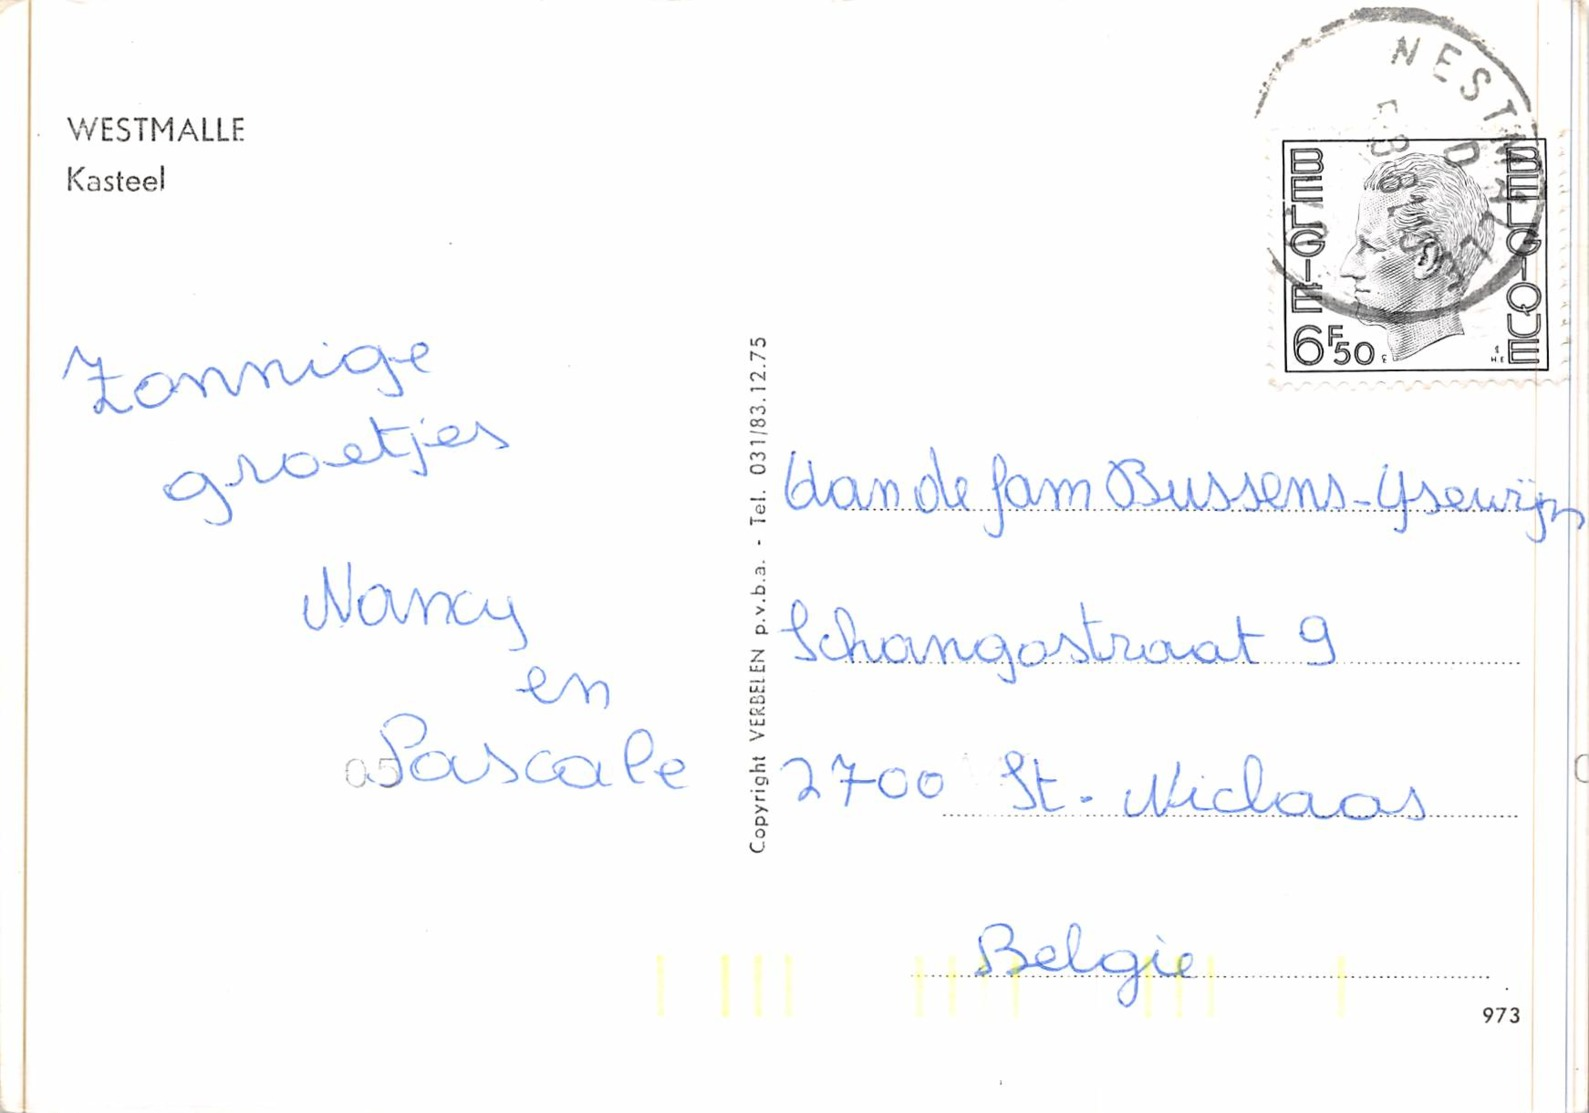 WESTMALLE
Kasteel
BELGIE
BELGIQUE
6F50
Zonnige
groetjes
Nancy
en
Pascale
Copyright VERBELEN p.v.b.a. - Tel. 031/83.12.75
Aan de fam Bussens-Ysewijn
Schangostraat 9
2700 St. Niclaas
Belgie
973